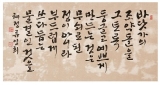 바닷가의
조약돌을
그토록
둥글고 예쁘게
만드는 것은
무쇠로 된
정이 아니라
부드럽게
쓰다듬는
물결인 것을